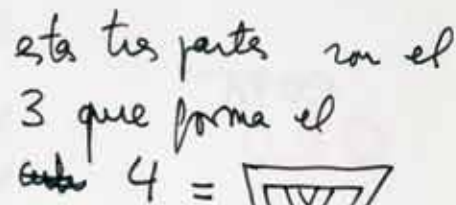 esta tres partes son el
3 que forma el
4 =